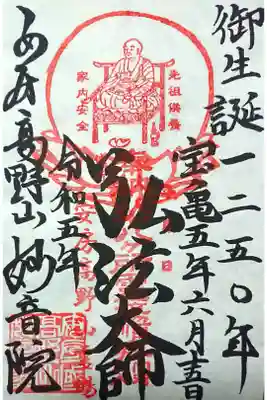 御生誕一二五〇年
宝亀五年六月十五日
先祖供養
家内安全
弘法大師
令和五年
安房高野山妙音院